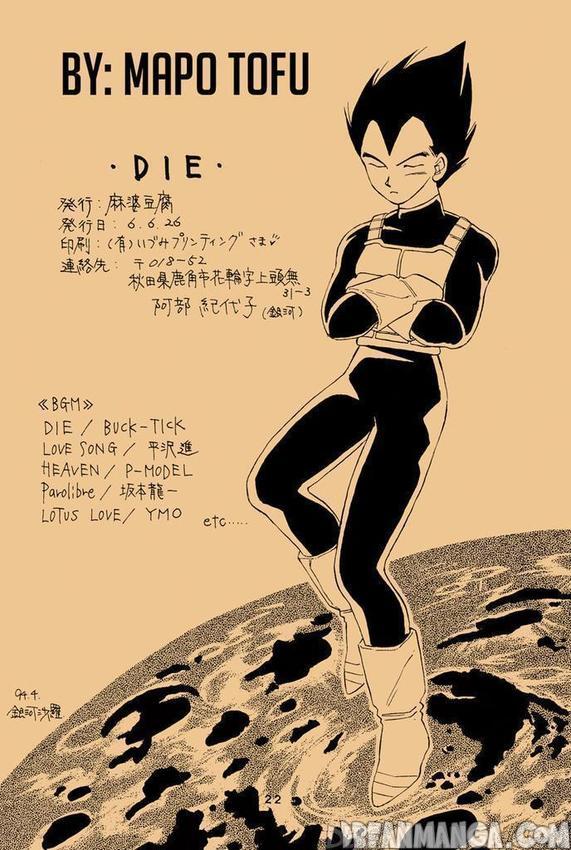 BY: MAPO TOFU
・DIE・
発行: 麻婆豆腐
発行日: 6.6.26
印刷: (有)いづみプリンティングさま
連絡先: 〒018-52
秋田県鹿角市花輪字上頭無
31-3
阿部 紀代子(銀河)
≪BGM≫
DIE / BUCK-TICK
LOVE SONG / 平沢進
HEAVEN / P-MODEL
Parolibre / 坂本龍一
LOTUS LOVE / YMO
etc.....
94.4.
銀河沙羅
22
DREANMANGA.COM